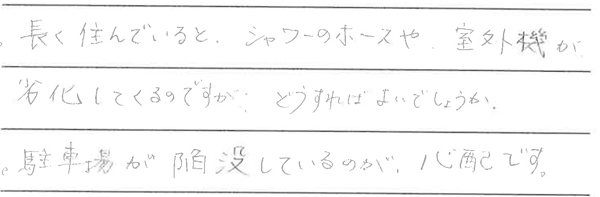 。長く住んでいると、シャワーのホースや、室外機が
劣化してくるのですが、どうすればよいでしょうか。
。駐車場が陥没しているのが、心配です。